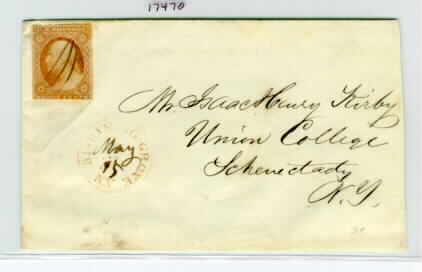 17470
Mr. Isaac Henry Kirby
Union College
Schenectady
N.Y.
GROVE
May
15